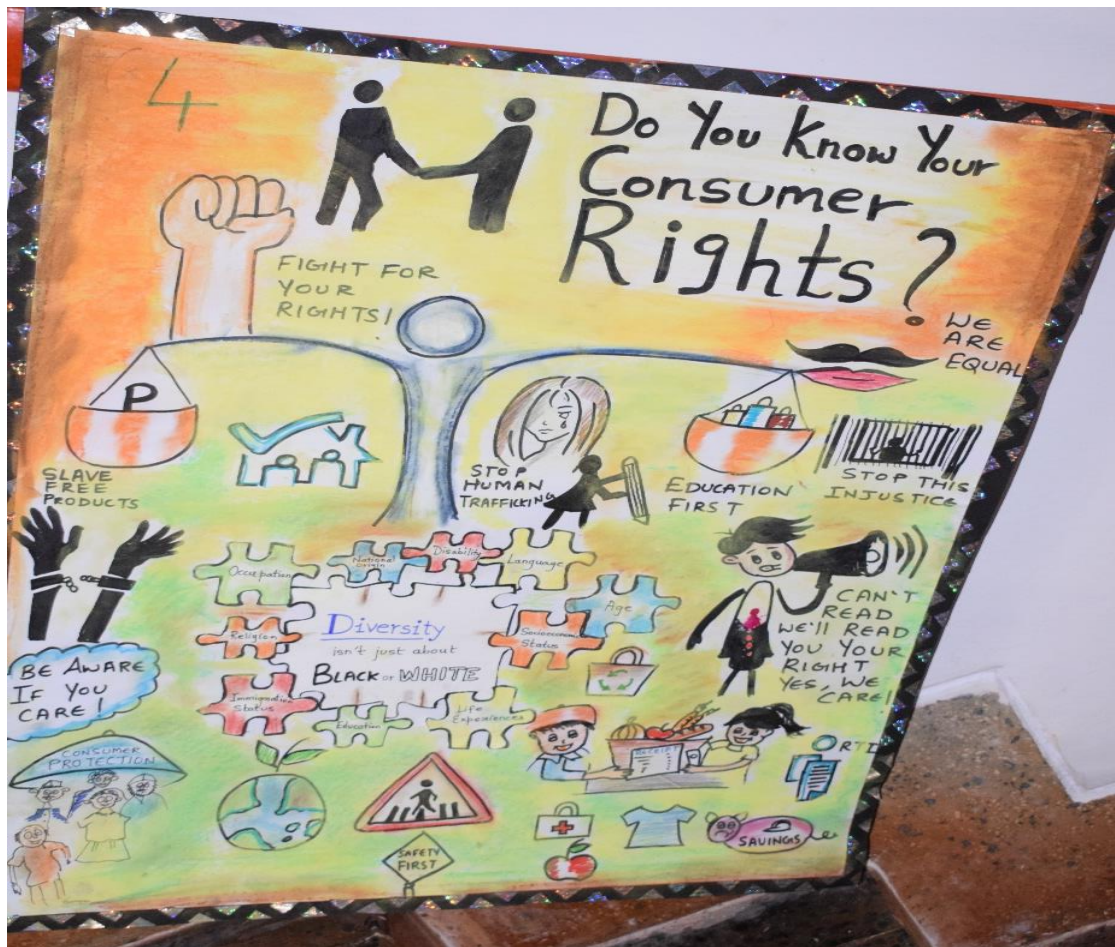 4
Do You Know Your
Consumer
Rights?
FIGHT FOR
YOUR
RIGHTS!
WE
ARE
EQUAL
P
SLAVE
FREE
PRODUCTS
STOP
HUMAN
TRAFFICKING
EDUCATION
FIRST
STOP THIS
INJUSTICE
Occupation
National
Origin
Disability
Language
Age
Religion
Socioeconomic
Status
Diversity
isn't just about
BLACK or WHITE
Immigration
Status
Education
Life
Experiences
CAN'T
READ
WE'LL READ
YOU YOUR
RIGHT
YES, WE
CARE!
BE AWARE
IF YOU
CARE!
CONSUMER
PROTECTION
RECEIPT
RTI
SAFETY
FIRST
SAVINGS